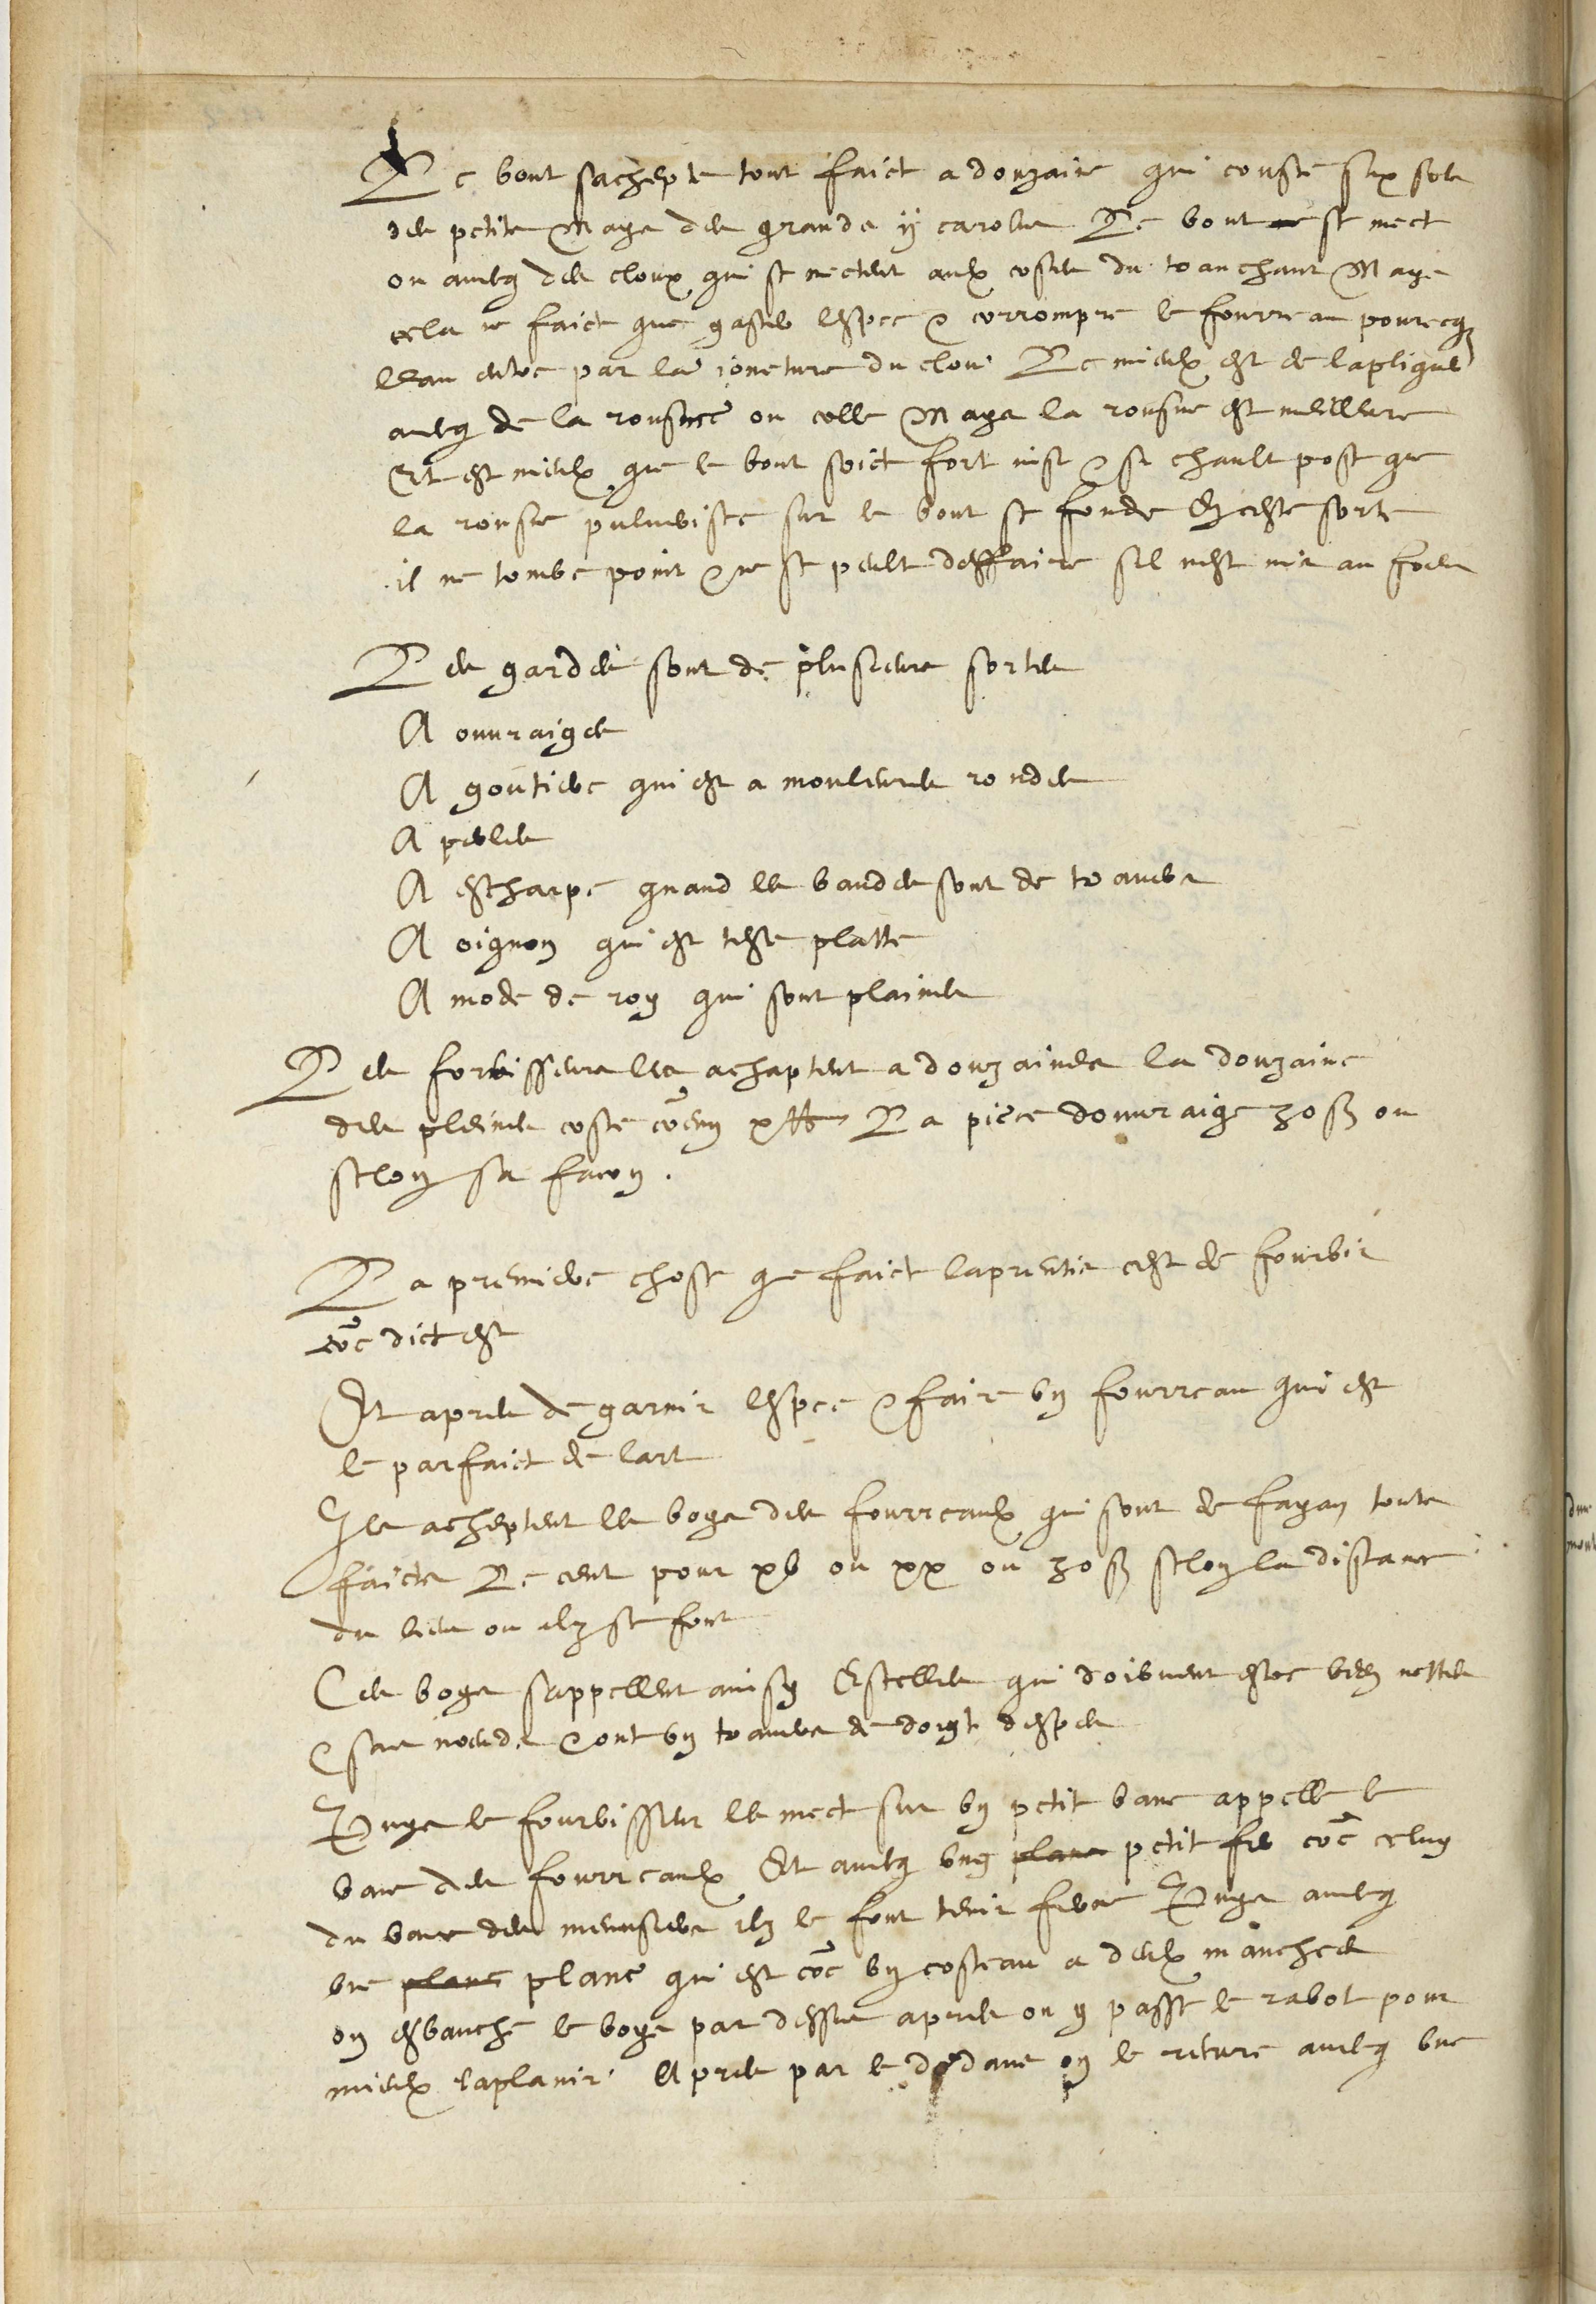 Le bout sachepte tout faict a douzaine qui couste six solz
des petits Mays des grands ij carolus Le bout se mect
ou avecq des cloux qui se mectent aulx costes du tranchant Mays
cela ne faict que gaster lespee & corrompre le fourreau pourceq
leau entre par la joincture du clou Le mieulx est de lapliquer
avecq de la rousine ou colle Mays la rousine est meilleure
Et est mieulx que le bout soict fort juste & si chault posé que
la rousine pulverisee sur le bout se fonde En ceste sorte
il ne tombe point & ne se peult deffaire sil nest mis au foeu
Les gardes sont de plusieurs sortes
A ouvraiges
A goutiere qui est a mouleures rondes
A perles
A escharpe quand les bandes sont de travers
A oignon qui est teste platte
A mode de roy qui sont plaines
Les forbisseurs les achaptent a douzaines la douzaine
des pleines coste coēm x lb La piece douvraige 30 ß ou
selon sa facon.
La premiere chose que faict laprentis cest de fourbir
cōe dict est
Et apres de garnir lespee & faire un fourreau qui est
le parfaict de lart
Ilz acheptent les boys des fourreaulx qui sont de fayan touts
faicts Le cent pour xv ou xx ou 30 ß selon la distance
du lieu ou ilz se font
Ces boys sappellent aussy Estelles qui doibvent estre bien nettes
& sans noeuds & ont un travers de doigt despes
Puys le fourbisseur les mect sur un petit banc appelle le
banc des fourreaulx Et avecq ung plane petit fer cōe celuy
du banc des menusiers ilz le font tenir ferme Puys avecq
une plane plane qui est cōe un costeau a deulx manches
on esbauche le boys par dessus apres on y passe le rabot pour
mieulx laplanir Apres par le dedans on le reture avecq une